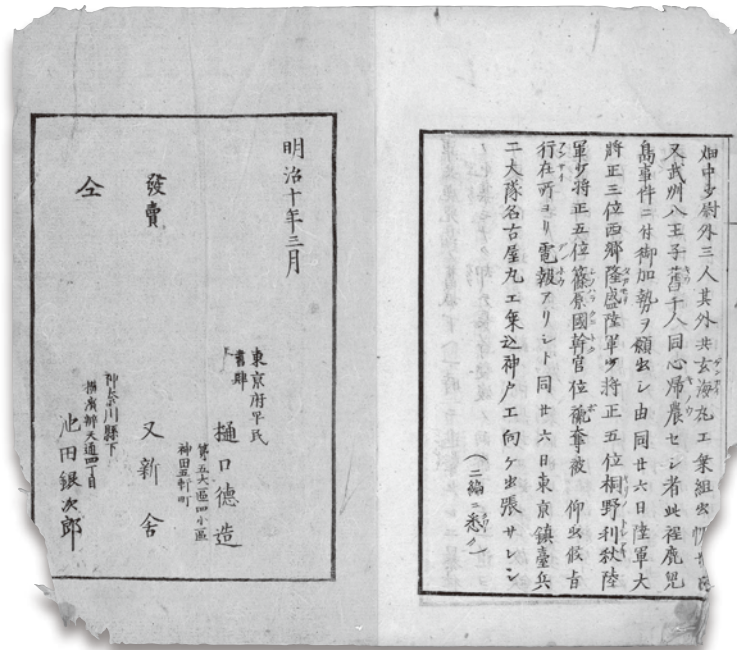 畑中少尉外三人其外共玄海丸エ乗組出
又武州八王子舊千人同心帰農セシ者此程鹿児
島事件ニ付御加勢ヲ願出シ由同廿六日陸軍大
將正三位西郷隆盛陸軍少將正五位桐野利秋陸
軍少將正五位篠原國幹官位褫奪被 仰出候旨
行在所ヨリ電報アリシト同廿六日東京鎮臺兵
二大隊名古屋丸エ乗込神戸エ向ケ出張サレシ
(二編ニ悉クシ)
明治十年三月
東京府平民
書肆
樋口德造
第五大區四小區
神田五軒町
發賣
又新舍
仝
神奈川縣下
天通四丁目
池田銀次郎